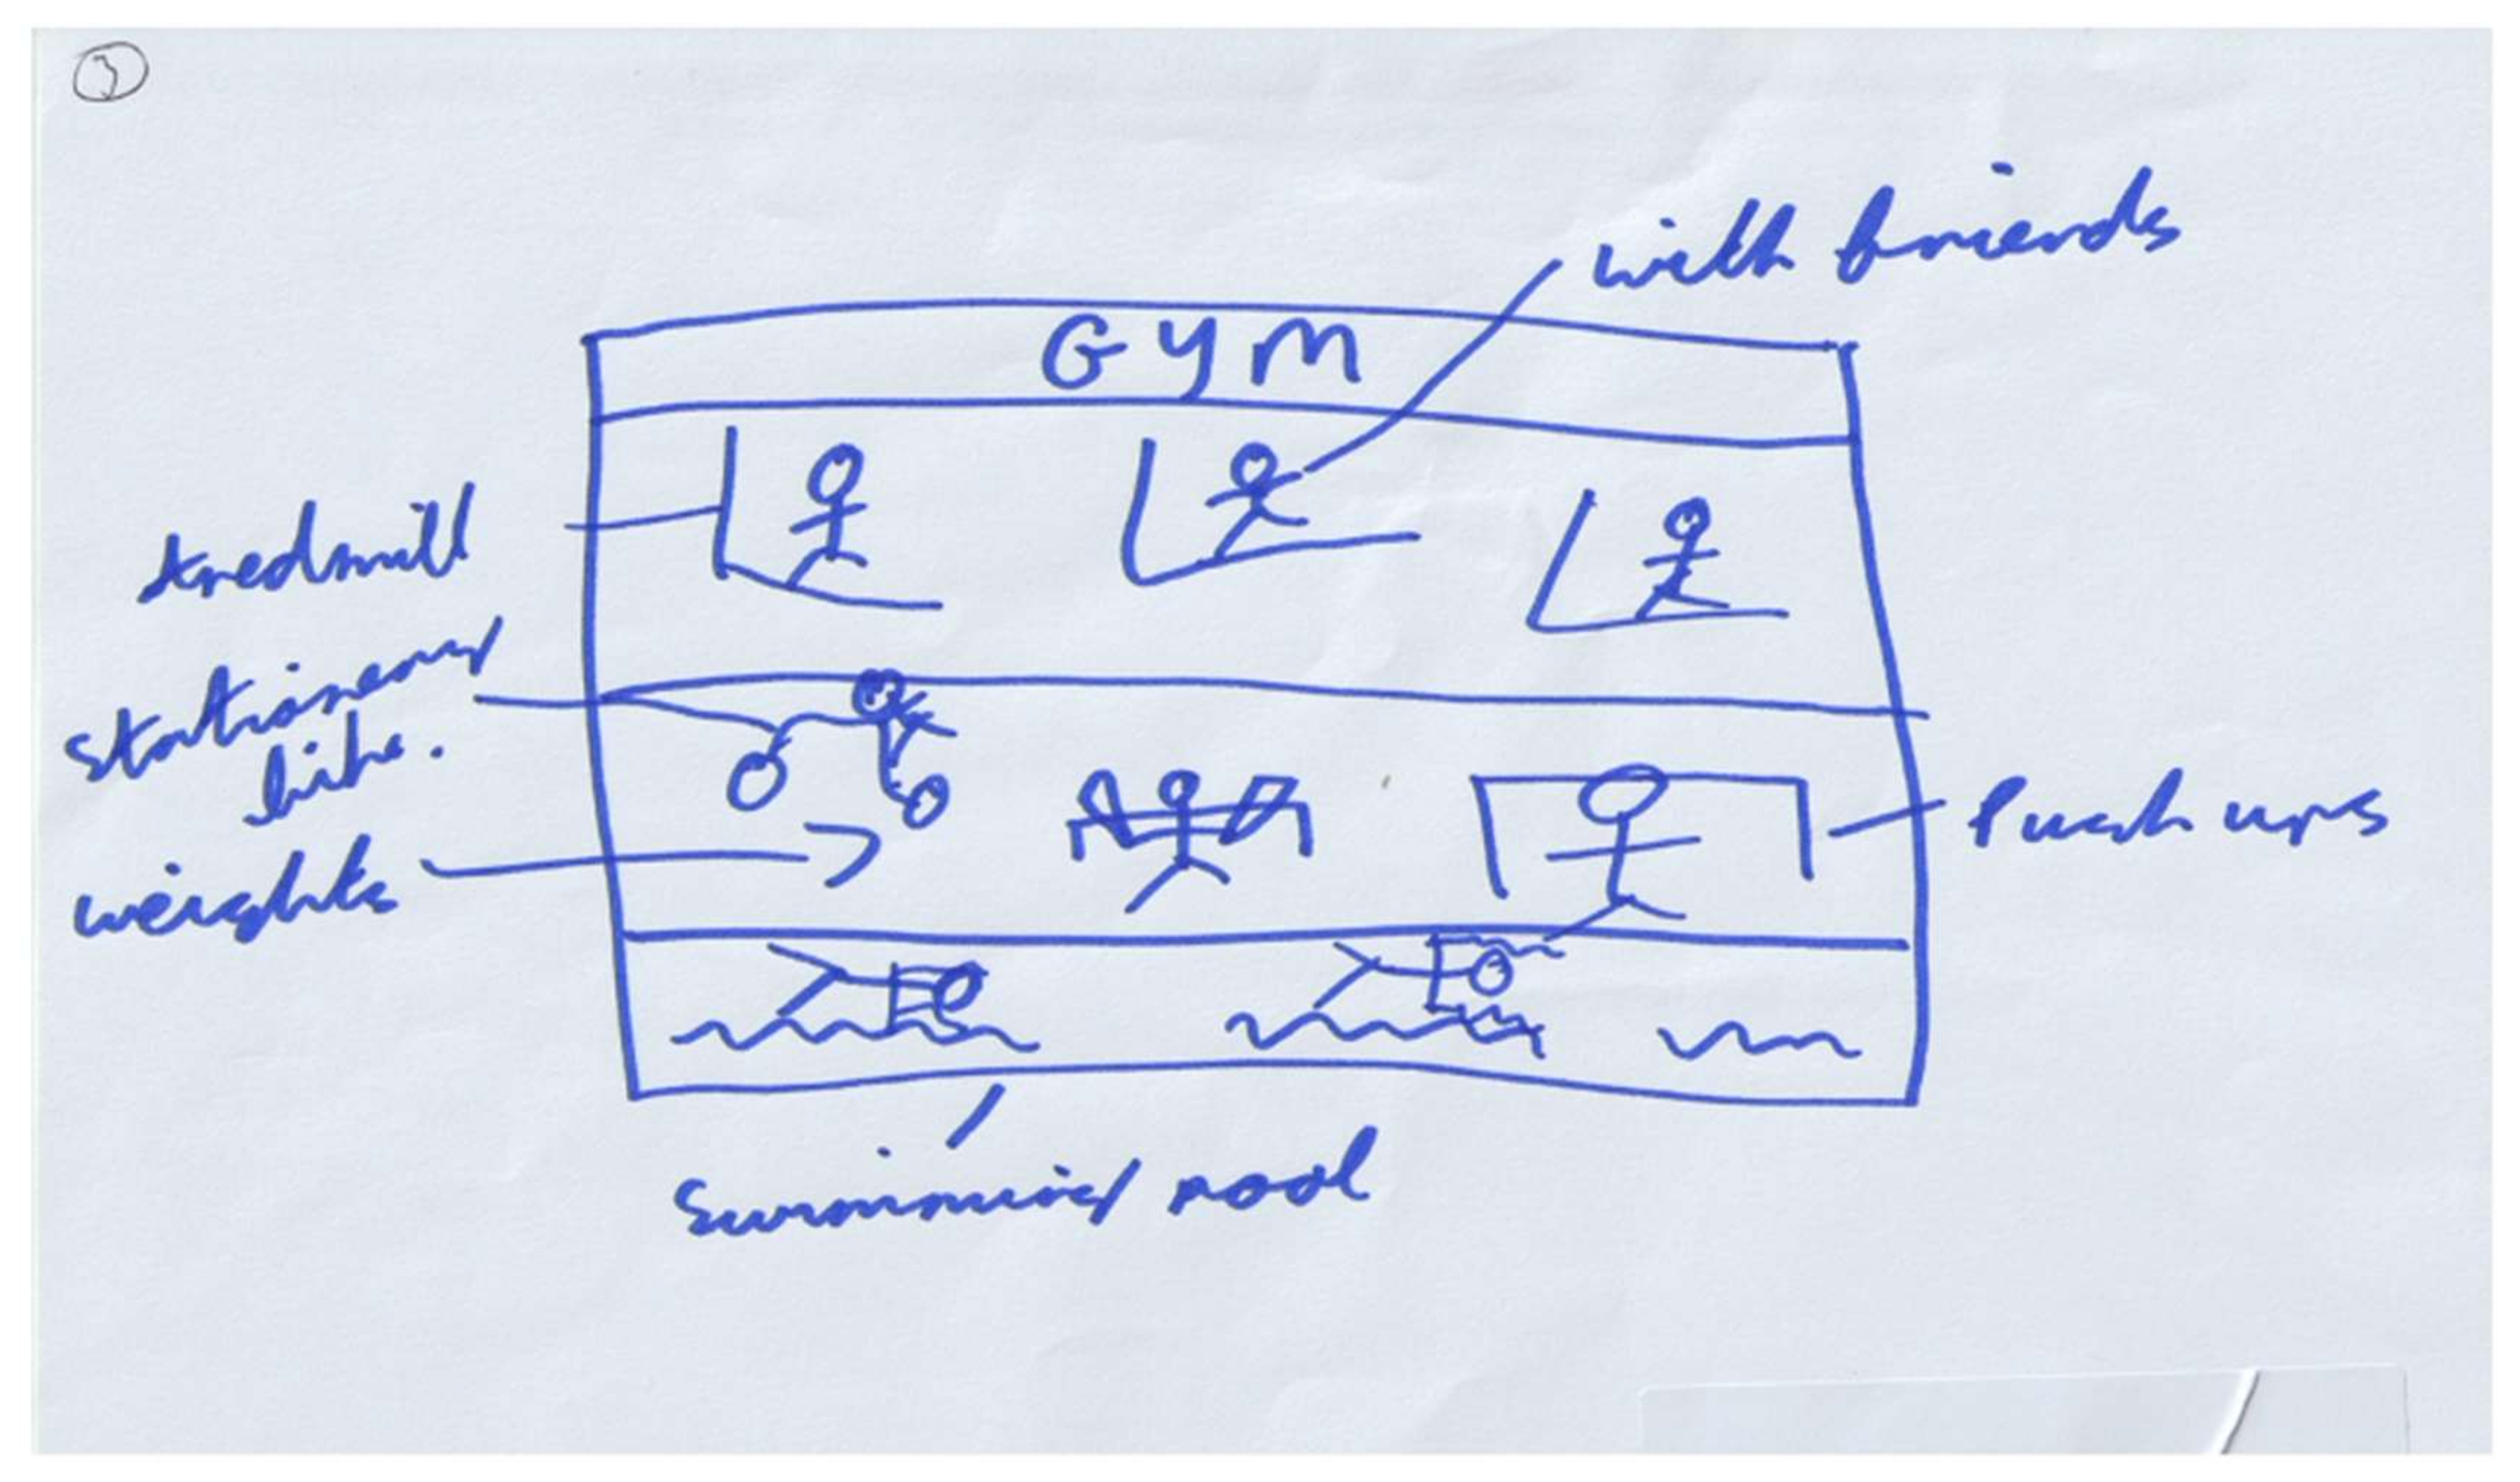 3
with friends
GYM
tredmill
stationeary
bike.
weights
Push ups
Swimming pool